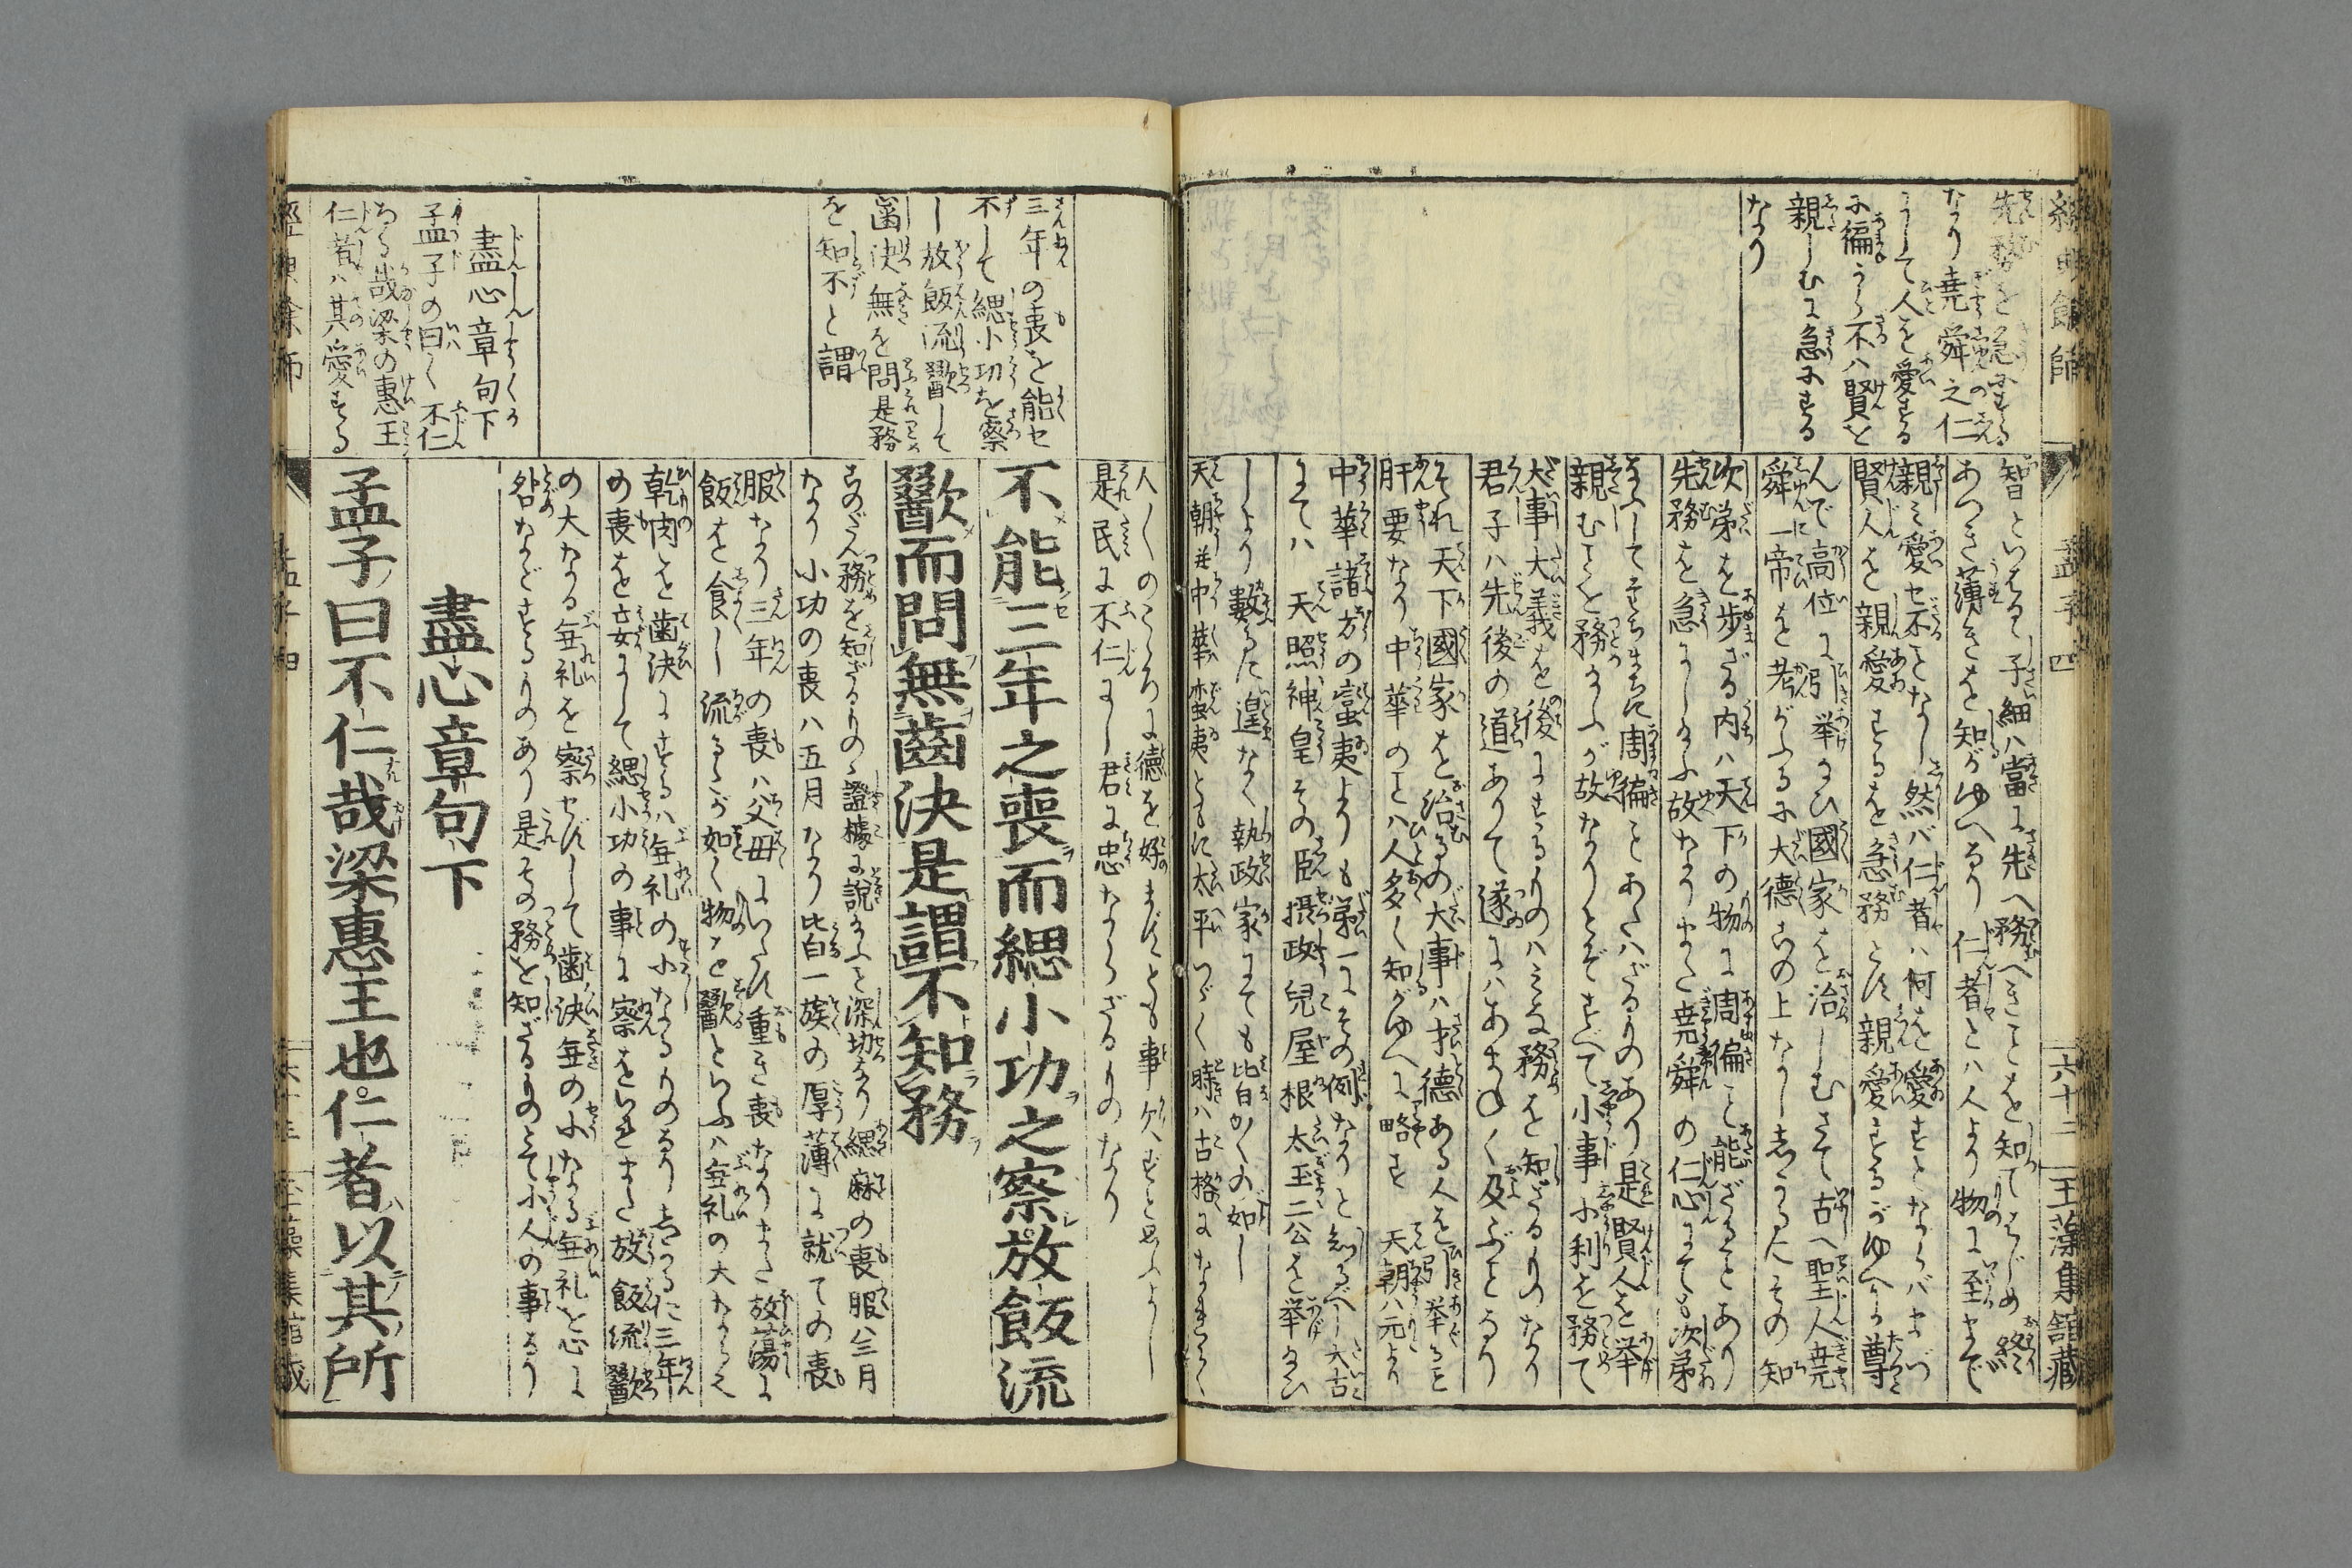 經典餘師
孟子四
六十二
玉藻集舘藏
先務を急にする
なり堯舜之仁
にして人を愛する
に徧から不ハ賢を
親しむに急にする
なり
智といはる子細ハ當に先へ務べきことを知てはじめ終
あつき薄きを知がゆへなり仁者とハ人より物に至まで
親ミ愛セ不となし然バ仁者ハ何を愛すとならバまづ
賢人を親愛するを急務とす親愛するがゆへに尊
んで高位に引挙給ひ國家を治しむさて古へ聖人堯
舜二帝を考がふるに大德の上なし志かるにその知
次第を歩ざる内ハ天下の物に周徧こと能ざるとあり
先務を急にし給ふ故なりまた堯舜の仁心にても次第
なふしてそちまちに周徧ことあたハざるものあり是賢人を挙
親むことを務め給ふが故なりとぞすべて小事小利を務て
大事大義を後にするものハミな務を知ざるものなり
君子ハ先後の道ありて遂にハあまねく及ぶとなり
それ天下國家を治るの大事ハ才德ある人を引挙るを
肝要なり中華のことハ人多く知がゆへに略す 天朝ハ元より
中華諸方の蛮夷よりも第一にその例なりと知るべし大古
にてハ 天照神皇その臣摂政兒屋根太玉二公を挙給ひ
しより數るに遑なく執政家にても皆かくの如し
天朝并中華蛮夷ともに太平つゞく時ハ古格になきらく
人〳〵のこゝろに德を好まずとも事欠ずと思ふよし
是民に不仁にし君に忠ならざるものなり
三年の喪を能セ
不して緦小功を察
し放飯流歠して
齒決無を問是務
を知不と謂
不能三年之喪而緦小功之察放飯流
歠而問無齒決是謂不知務
このだん務を知ざるものゝ證據を說給ふ深切なり緦麻の喪服ハ三月
なり小功の喪ハ五月なり皆一族の厚薄に就ての喪
服なり三年の喪ハ父母にいたす重き喪なりまた放蕩に
飯を食し流るゝが如く物を歠とらふハ無礼の大なるなり
乾肉を歯決にするハ無礼の小なるものなり志かるに三年
の喪を妄にして緦小功の事に察をいたしまた放飯流歠
の大なる無礼を察せずして歯決無の小なる無礼を心に
咎などするものあり是その務を知ざるものとて小人の事なり
盡心章句下
孟子の曰く不仁
なる哉梁の惠王
仁者ハ其愛する
盡心章句下
孟子曰不仁哉梁惠王也仁者以其所
經典餘師
孟子四